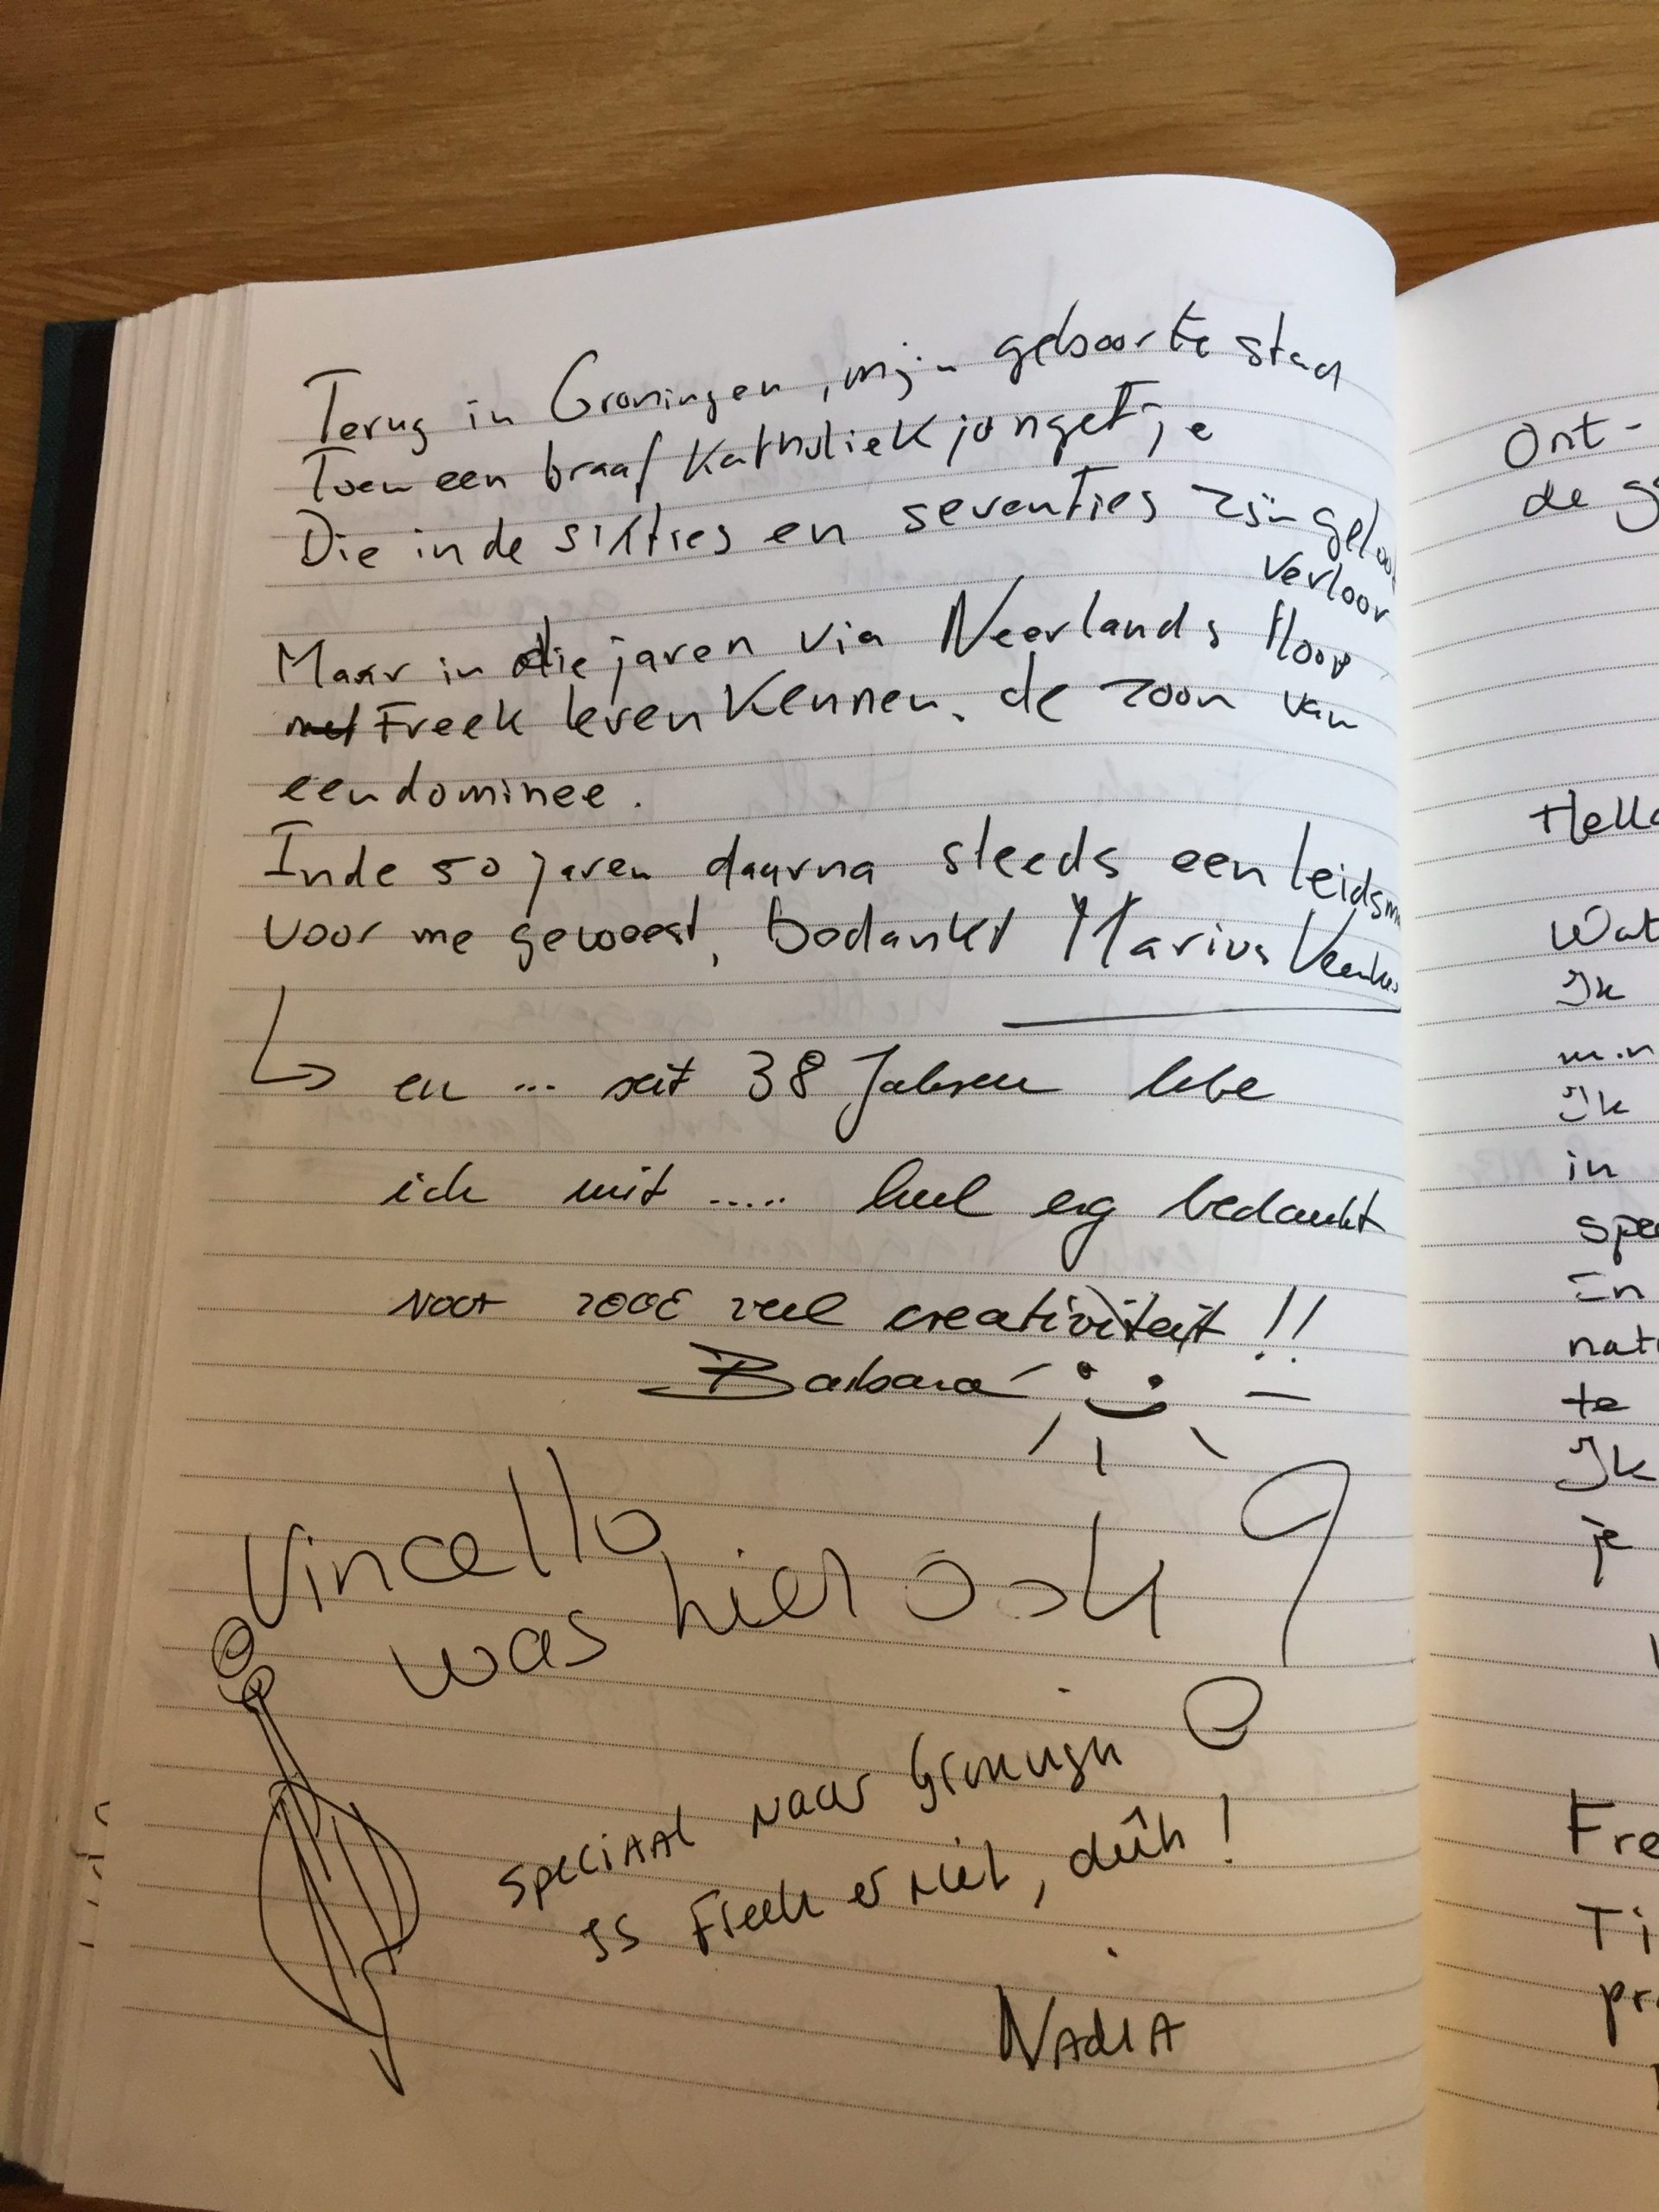 Terug in Groningen, mijn geboorte stad
Toen een braaf Katholiek jongetje
Die in de sixties en seventies zijn geloof
verloor
Maar in die jaren via Neerlands Hoop
met Freek leren kennen, de zoon van
een dominee.
In de 50 jaren daarna steeds een leidsm
voor me geweest, bedankt Marius
en ... seit 38 Jahren lebe
ich mit ..... heel erg bedankt
voor zoOE veel creativiteit !!
Barbara
Vincello
was hier ook !
speciaal naar Groningn
is Freek er niet, dûh!
NAdiA
Ont-
de g
Hello
Wat
Ik
m.n
Ik
in
spe
In
nat
te
Ik
je
Fre
Ti
pr